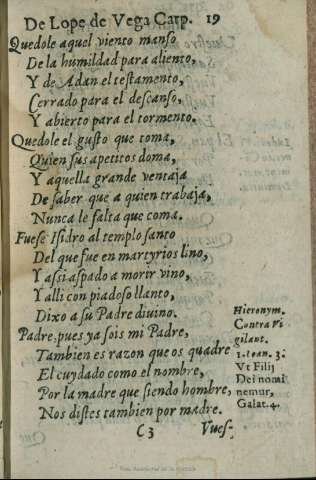 De Lope de Vega Carp. 19
Quedole aquel viento manso
De la humildad para aliento,
Y de Adan el testamento,
Cerrado para el descanso,
Y abierto para el tormento.
Quedole el gusto que toma,
Quien sus apetitos doma,
Y aquella grande ventaja
De saber que a quien trabaja,
Nunca le falta que coma.
Fuese Isidro al templo santo
Del que fue en martyrios lino,
Y assi aspado a morir vino,
Y alli con piadoso llanto,
Dixo a su Padre diuino.
Padre, pues ya sois mi Padre,
Tambien es razon que os quadre
El cuydado como el nombre,
Por la madre que siendo hombre,
Nos distes tambien por madre.
Hieronym.
Contra Vi
gilant.
1. Ioan. 3.
Vt Filij
Dei nomi
nemur,
Galat. 4.
C3 Vues-